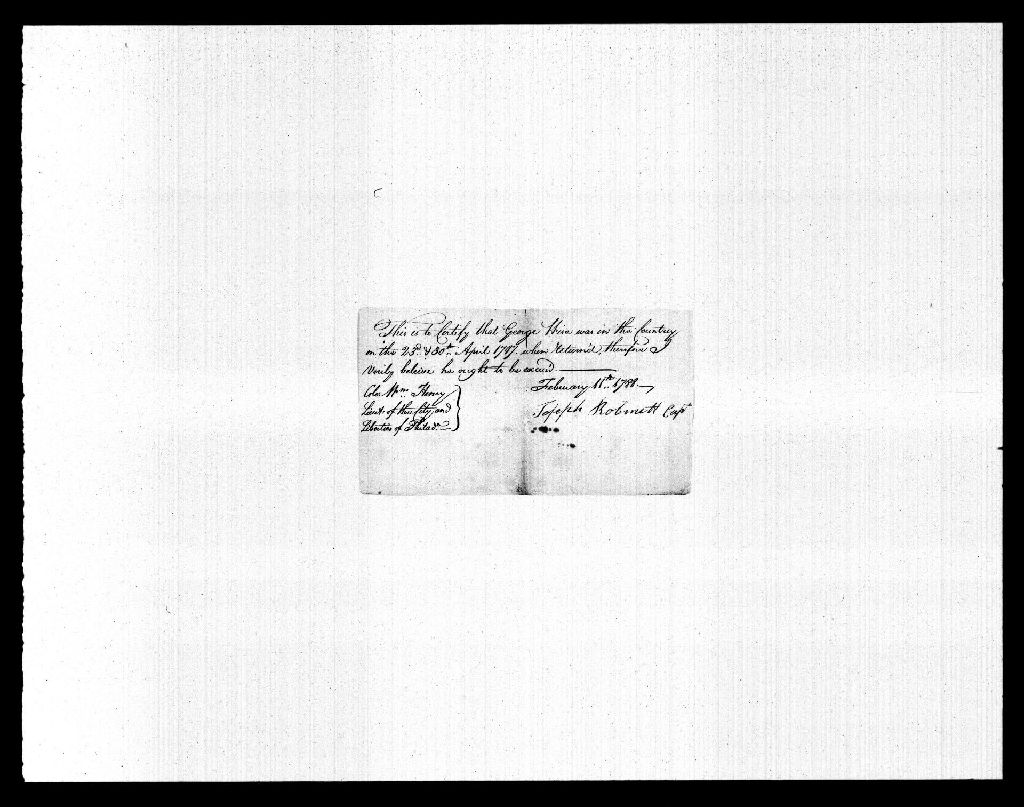 This is to Certify that George was in the Country
on the 23d. & 30th. April 1787. when Return'd, therefore I
Verily beleive he ought to be excused
February 11th. 1788
Joseph Robinett Capt
Colo. Wm. Henry
Lieut. of the City, and
Liberties of Philada.